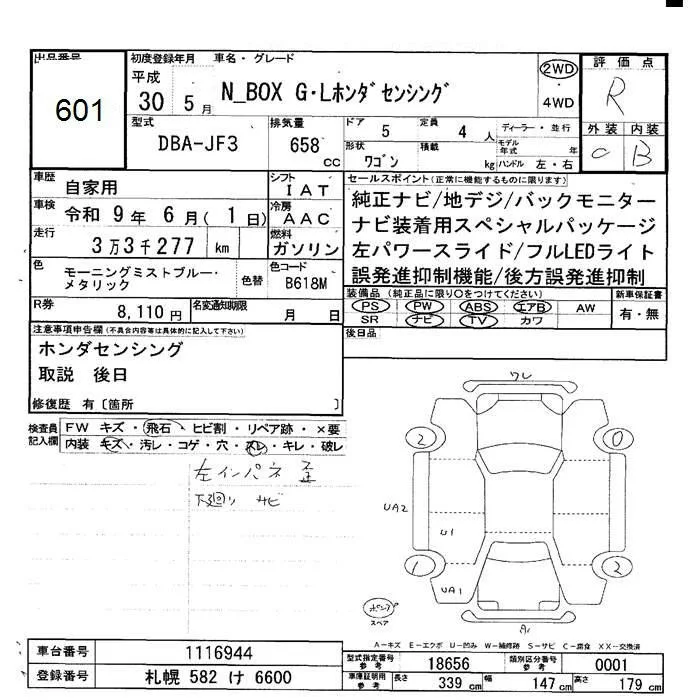 出品番号
601
初度登録年月 車名・グレード
平成 30 5月
N_BOX G・Lホンダセンシング
2WD
4WD
評価点
R
外装 内装
C B
型式 DBA-JF3
排気量 658 cc
ドア 5 定員 4 人
形状 ワゴン 積載 kg
ディーラー・並行
モデル年式 年
ハンドル 左・右
車歴 自家用
シフト IAT
車検 令和 9年 6月( 1日)
冷房 AAC
走行 3万3千277 km
燃料 ガソリン
色 モーニングミストブルー・メタリック
色替
色コード B618M
R券 8,110円
名変通知期限 月 日
セールスポイント(正常に機能するものに限ります)
純正ナビ/地デジ/バックモニター
ナビ装着用スペシャルパッケージ
左パワースライド/フルLEDライト
誤発進抑制機能/後方誤発進抑制
装備品(純正品に限り○をつけてください)
PS PW ABS エアB AW
SR ナビ TV カワ
新車保証書
有・無
後日品
注意事項申告欄(不具合内容等は具体的に記入して下さい)
ホンダセンシング
取説 後日
修復歴 有〔箇所 〕
検査員記入欄
FW キズ・飛石・ヒビ割・リペア跡・×要
内装 キズ・汚レ・コゲ・穴・スレ・キレ・破レ
左インパネ 歪
下廻り サビ
ワレ
2
0
UA2
U1
1
2
UA1
ポンプ
スペア
A-キズ E-エクボ U-凹み W-補修跡 S-サビ C-腐食 XX-交換済
車台番号 1116944
登録番号 札幌 582 け 6600
型式指定番号 参考 18656
類別区分番号 参考 0001
車庫証明用 参考 長さ 339 cm 幅 147 cm 高さ 179 cm